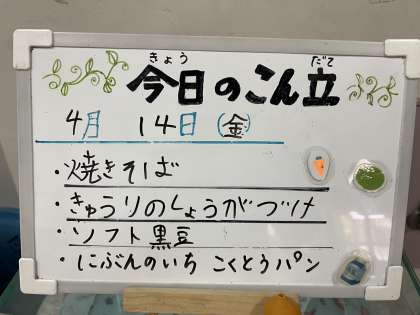 きょう だて
今日のこん立
4月 14日(金)
・焼きそば
・きゅうりのしょうがづけ
・ソフト黒豆
・にぶんのいち こくとうパン